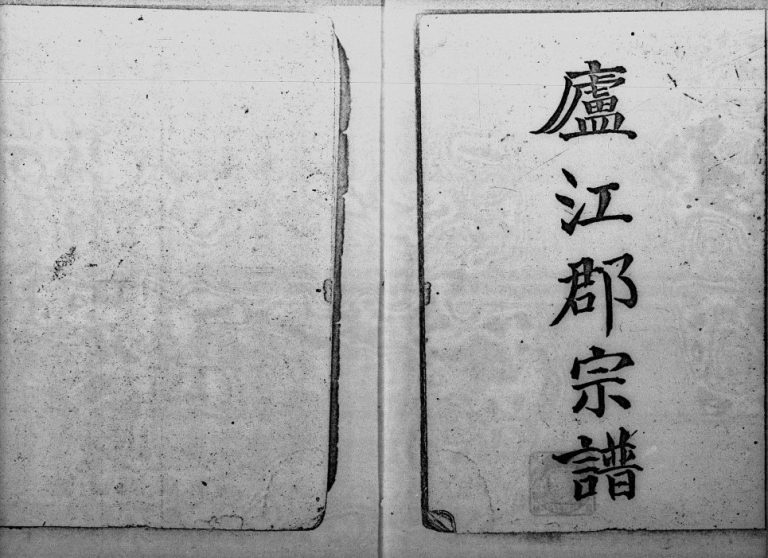 廬江郡宗譜